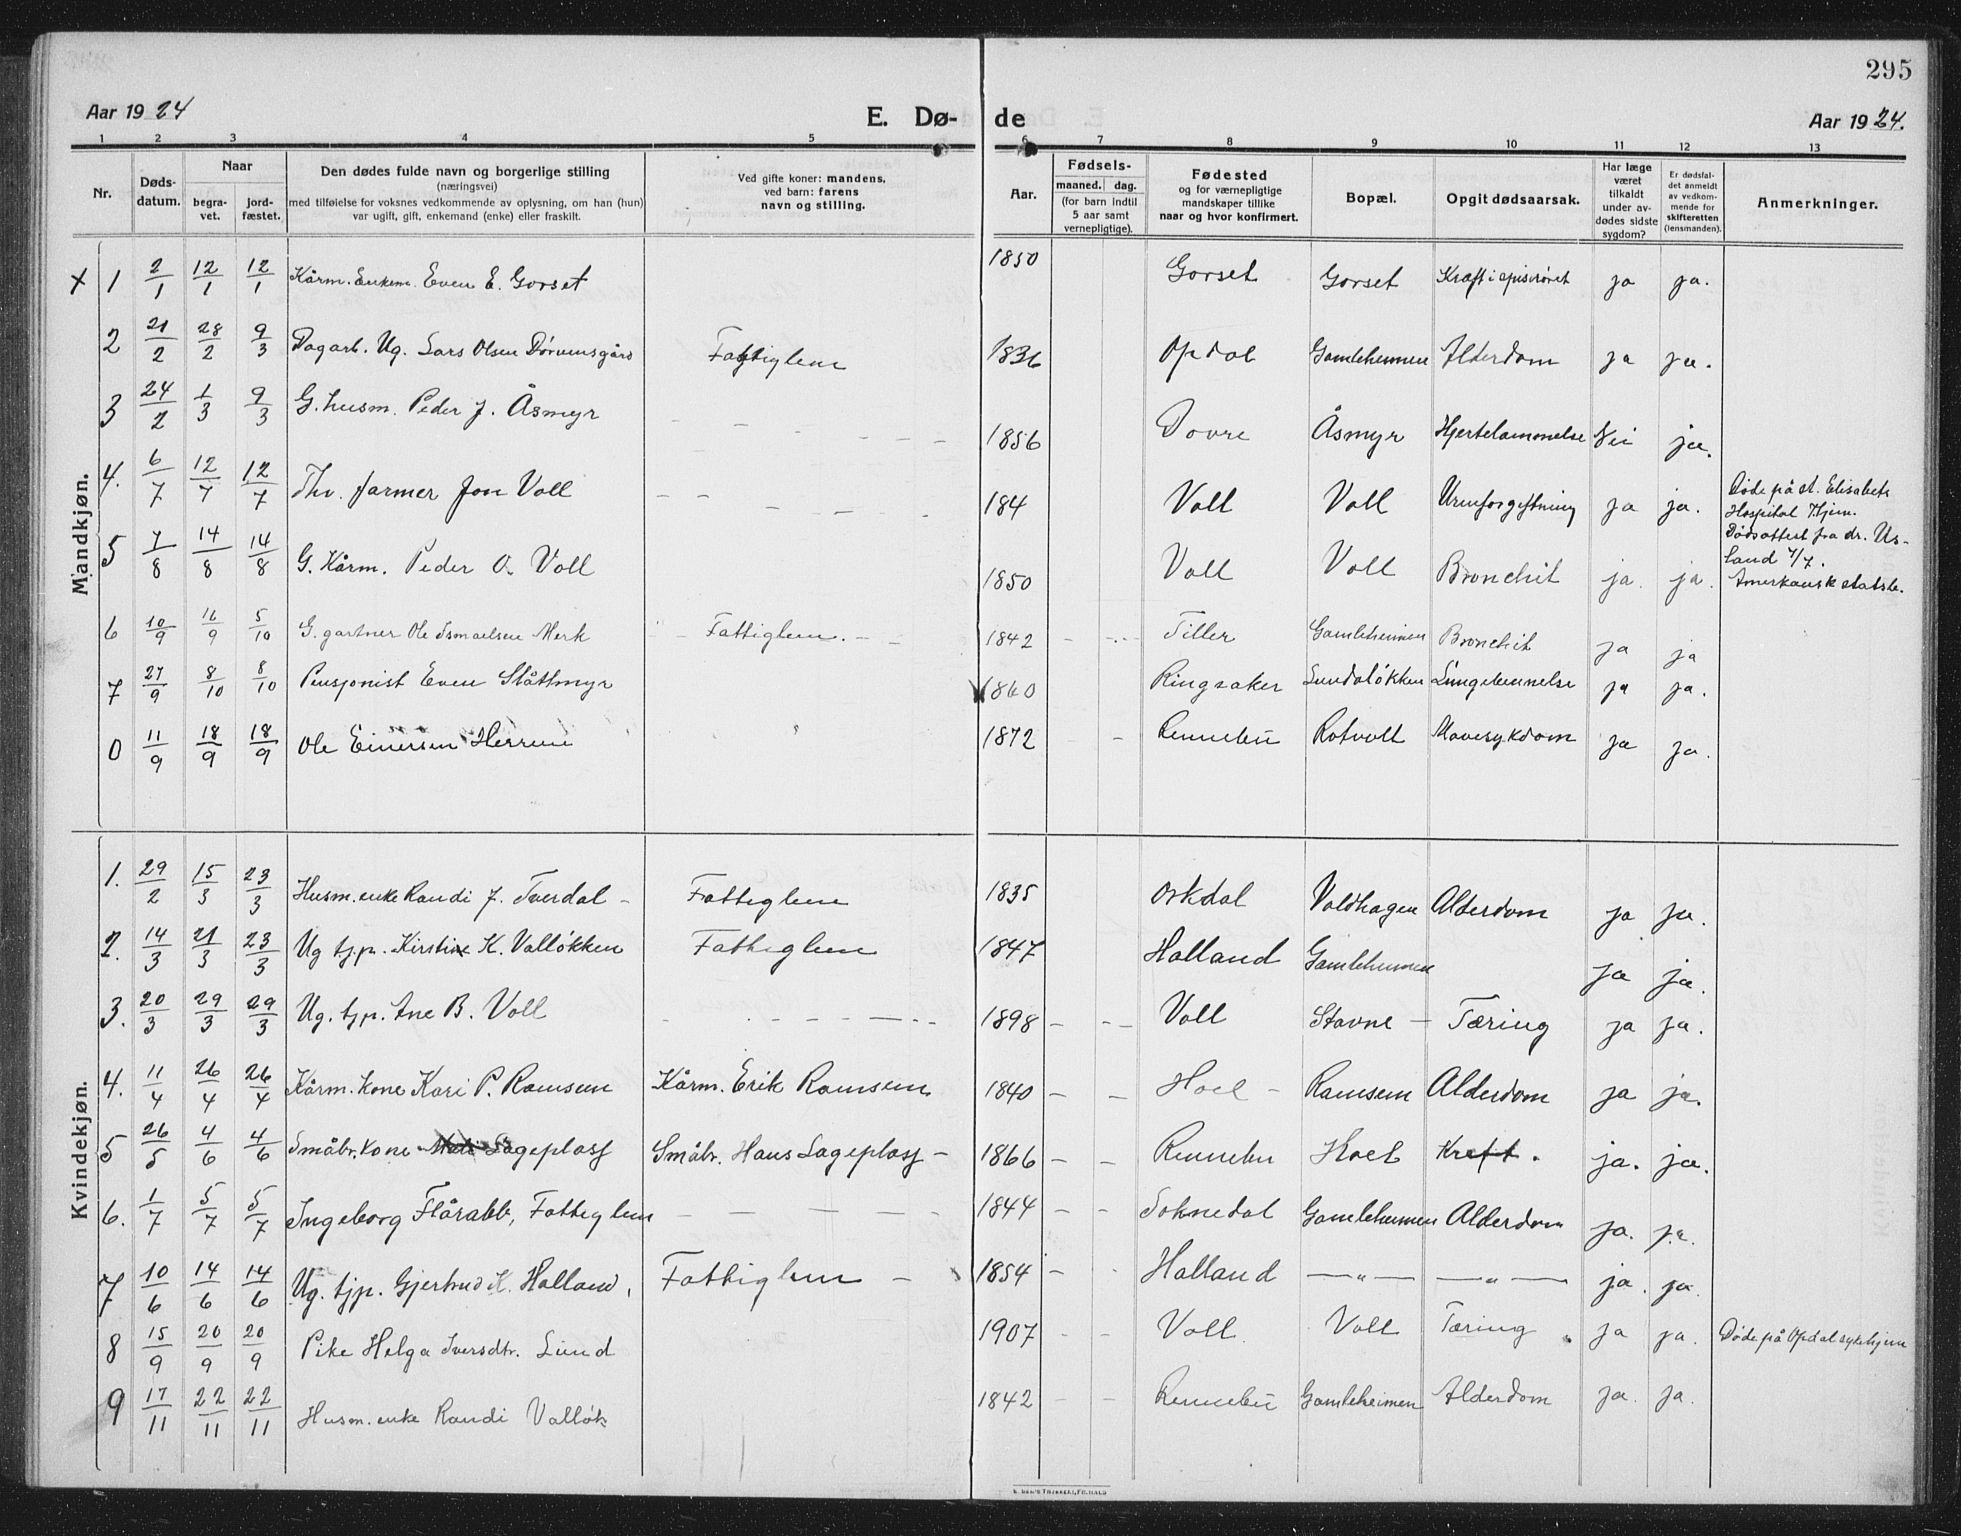 295
Aar 1924
E. Dø-
de
Aar 1924.
1 2 3 4 5 6 7 8 9 10 11 12 13
Nr.
Døds-
datum.
Naar
begra-
vet.
jord-
fæstet.
Den dødes fulde navn og borgerlige stilling
(næringsvei)
med tilføielse for voksnes vedkommende av oplysning, om han (hun)
var ugift, gift, enkemand (enke) eller fraskilt.
Ved gifte koner: mandens,
ved barn: farens
navn og stilling.
Aar.
Fødsels-
maaned. dag.
(for barn indtil
5 aar samt
vernepligtige).
Fødested
og for værnepligtige
mandskaper tillike
naar og hvor konfirmert.
Bopæl.
Opgit dødsaarsak.
Har læge
været
tilkaldt
under av-
dødes sidste
sygdom?
Er dødsfal-
det anmeldt
av vedkom-
mende for
skifteretten
(lensmanden).
Anmerkninger.
Mandkjøn.
x 1 2/1 12/1 12/1 Kårm. Enkem. Even E. Gorset 1850 Gorset Gorset Kræft i spiserøret ja ja.
2 21/2 28/2 9/3 Dagarb. Ug. Lars Olsen Dørumsgård Fattiglem 1836 Opdal Gamleheimen Alderdom ja ja.
3 24/2 1/3 9/3 G. husm. Peder J. Åsmyr - - - - - 1856 Dovre Åsmyr Hjertelammelse Nei ja.
4. 6/7 12/7 12/7 Thv. farmer Jon Voll - - - - - 184 Voll Voll Urinforgiftning ja ja. Døde på St. Elisabets
Hospital Thjem.
Dødsattest fra dr. Us-
land 7/7.
5 7/8 14/8 14/8 G. Kårm. Peder O. Voll 1850 Voll Voll Bronchit ja. ja. Amerikansk statsb.
6 10/9 16/9 5/10 G. gartner Ole Ismaelsen Merk - Fattiglem. - - 1842 - - Tiller Gamleheimen Bronchit ja ja
7 27/9 8/10 8/10 Pensjonist Even Slåttmyr 1860 Ringsaker Sundaløkken ja ja.
0 11/9 18/9 18/9 Ole Einersen Herrem 1872 - Rennebu Rotvoll Mavesykdom ja ja.
Kvindekjøn.
1. 29/2 15/3 23/3 Husm. enke Randi J. Tverdal - Fattiglem 1835 Orkdal Voldhagen Alderdom ja ja.
2. 14/3 21/3 23/3 Ug tjp. Kirstine K. Valløkken Fattiglem 1847 Halland Gamleheimen ja ja.
3. 20/3 29/3 29/3 Ug. tjp. Ane B. Voll - - - - - 1898 - - Voll Stavne - Tæring ja ja.
4. 11/4 26/4 26/4 Kårm. kone Kari P. Ramsem Kårm. Erik Ramsem 1840 - - Hoel - Ramsem Alderdom ja ja.
5 26/5 4/6 4/6 Småbr. kone Sageplass Småbr. Hans Sageplass - 1866 - - Rennebu Hoel Kreft. ja. ja.
6. 1/7 5/7 5/7 Ingeborg Flårabb, Fattiglem - - - - - 1844 - - Soknedal Gamleheimen Alderdom ja. ja.
7 10/6 14/6 14/6 Ug. tjp. Gjertrud K. Halland, Fattiglem - 1854 - - Halland -"- -"- ja. ja.
8 15/9 20/9 20/9 Pike Helga Iversdtr. Lund 1907 - - Voll. Voll Tæring. ja ja. Døde på Opdal sykehjem
9 17/11 22/11 22/11 Husm. enke Randi Valløk 1842 - - Rennebu Gamleheimen Alderdom ja. ja.